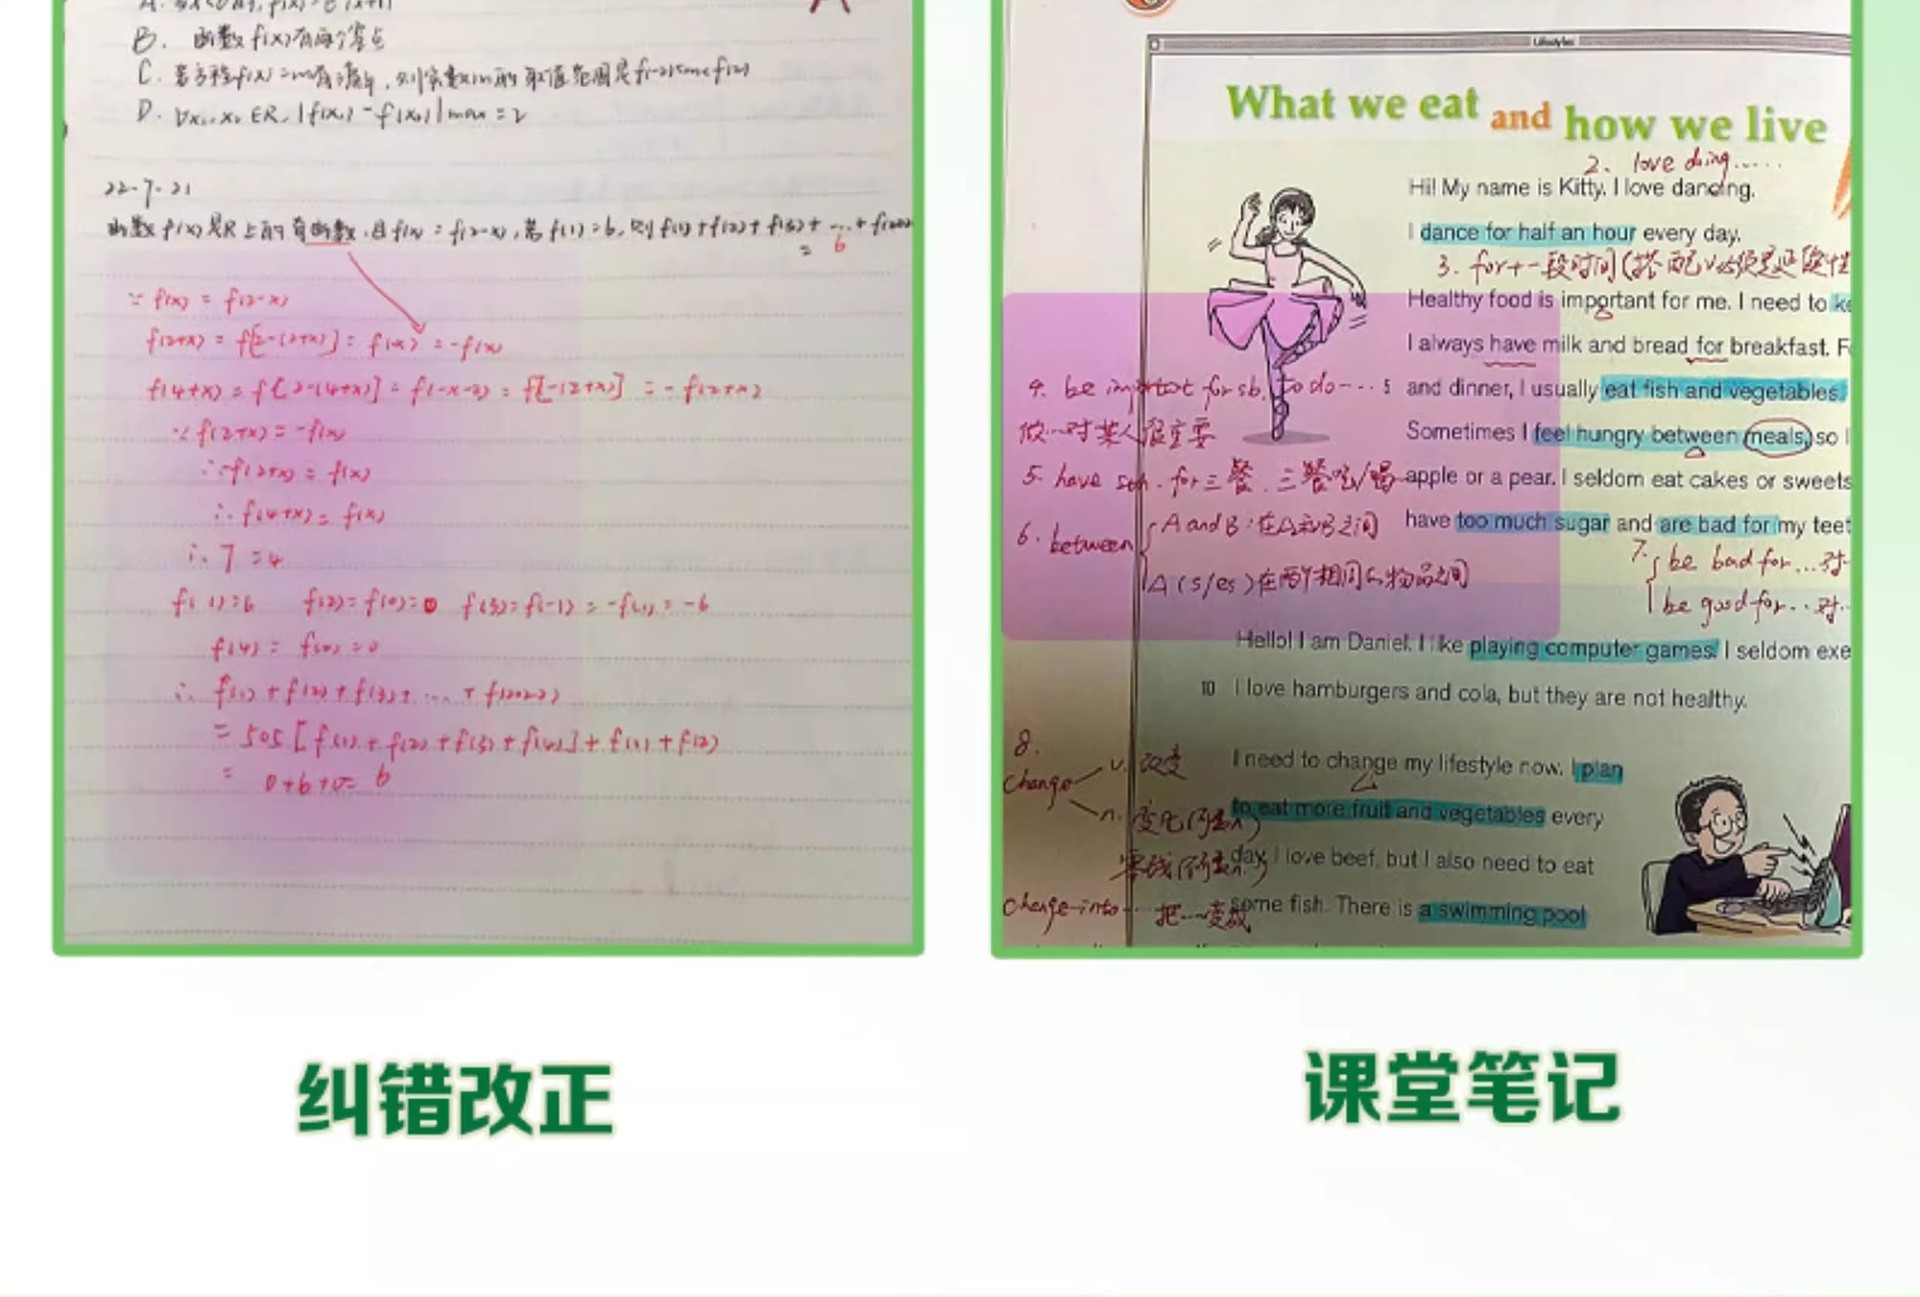 B. 函数f(x)有两个零点
C. 若方程f(x)=m有解,则实数m的取值范围是f(-2)≤m≤f(2)
D. ∀x₁,x₂∈R,|f(x₁)-f(x₂)|max=2
22-7-21
函数f(x)是R上的奇函数,且f(x)=f(2-x),若f(1)=6,则f(1)+f(2)+f(3)+…+f(2022)
= 6
∵ f(x) = f(2-x)
f(2+x) = f[2-(2+x)] = f(-x) = -f(x)
f(4+x) = f[2-(4+x)] = f(-x-2) = f[-(2+x)] = -f(2+x)
∵ f(2+x) = -f(x)
∴ -f(2+x) = f(x)
∴ f(4+x) = f(x)
∴ T=4
f(1)=6 f(2)=f(0)=0 f(3)=f(-1)=-f(1)=-6
f(4) = f(0) =0
∴ f(1)+f(2)+f(3)+…+f(2022)
= 505[f(1)+f(2)+f(3)+f(4)]+f(1)+f(2)
= 0+6+0= 6
纠错改正
Lifestyles
What we eat and how we live
2. love doing......
Hi! My name is Kitty. I love dancing.
I dance for half an hour every day.
3. for+一段时间(搭配v必须是延续性
Healthy food is important for me. I need to ke
I always have milk and bread for breakfast. F
4. be importot for sb. to do…
5 and dinner, I usually eat fish and vegetables.
做…对某人很重要
Sometimes I feel hungry between meals, so I
5. have sth. for三餐. 三餐吃/喝
apple or a pear. I seldom eat cakes or sweets
6. between
A and B:在A和B之间
A(s/es)在两个相同的物品之间
have too much sugar and are bad for my teet
7. be bad for...对
be good for...对
Hello! I am Daniel. I like playing computer games. I seldom exe
10 I love hamburgers and cola, but they are not healthy.
8.
change
v. 改变
n. 变化(可数n)
零钱(不可数n)
I need to change my lifestyle now. I plan
to eat more fruit and vegetables every
day. I love beef, but I also need to eat
change-into… 把…变成
some fish. There is a swimming pool
课堂笔记